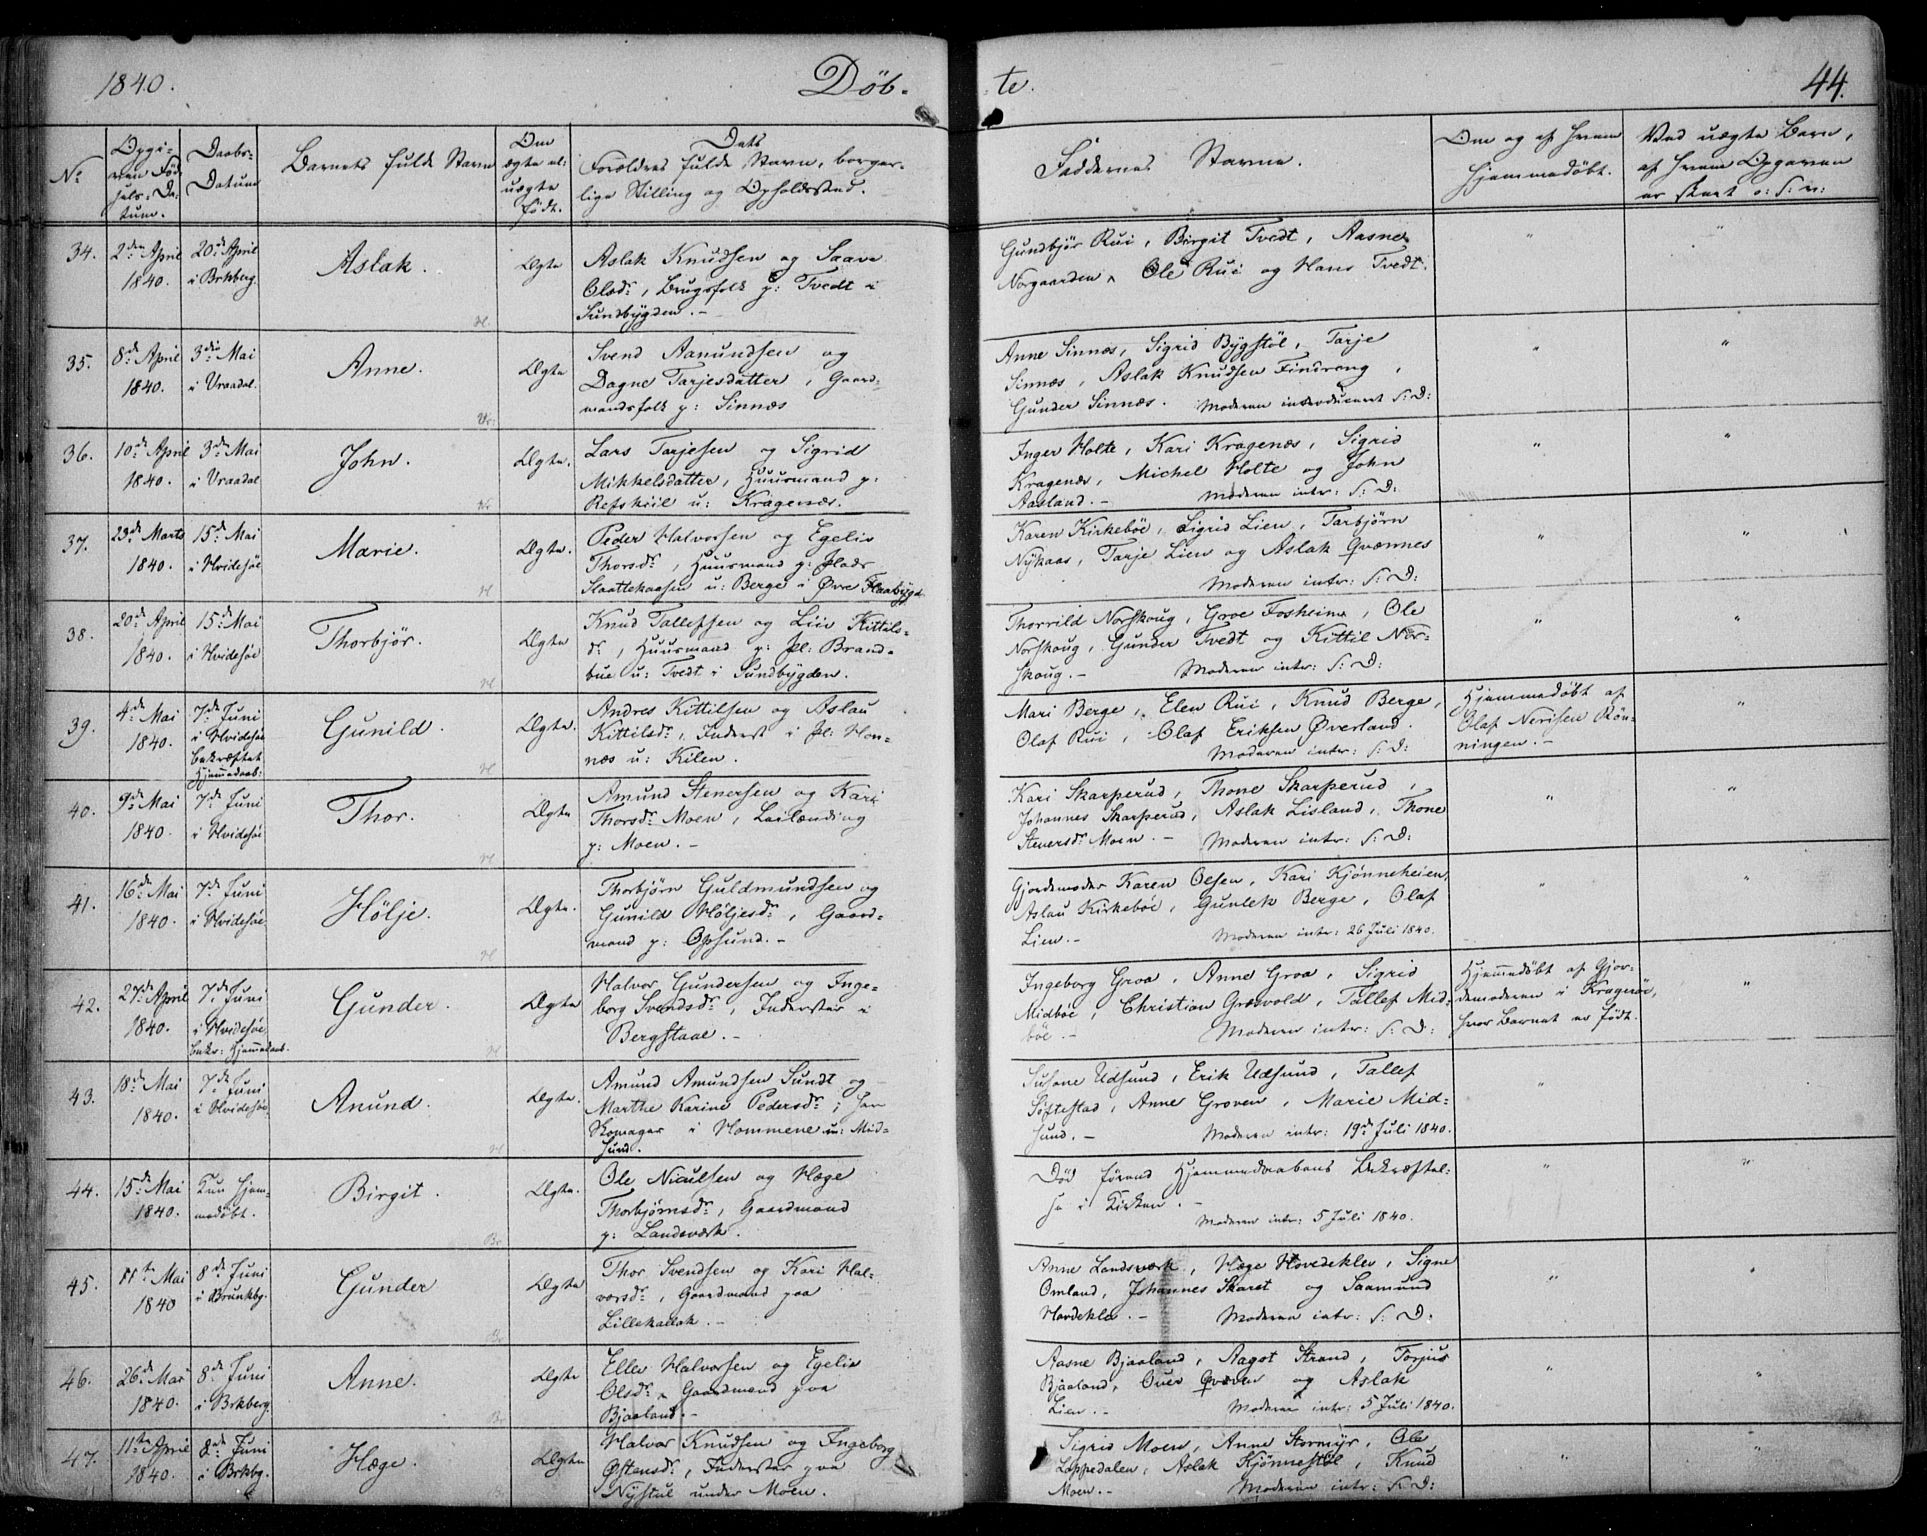 1840. Døb- te. 44.
No
Opgi-
ven Fød-
sels-Da-
tum.
Daabs-
Datum
Barnets fulde Navn
Om
ægte el:
uægte
født.
Dets
Forældres fulde Navn, borger-
lige Stilling og Opholdssted.
Faddernes Navne.
Om og af hvem
hjemmedøbt.
Ved uægte Børn,
af hvem Opgaven
er skeet o: s: v:
34. 2den April 1840. 20de April i Brkberg. Aslak. Ægte
Aslak Knudsen og Saave
Olsdr, Brugsfolk p: Tvedt i
Sundbygden. -
Gundbjør Rui, Birgit Tvedt, Aasne
Norgaarden, Ole Rui og Hans Tvedt.
35. 8de April 1840. 3die Mai i Vraadal. Anne. Ægte
Svend Aanundsen og
Dagne Tarjesdatter, Gaard-
mandsfolk p: Sinnæs
Anne Sinnæs, Sigrid Bygstøl, Tarje
Sinnæs, Aslak Knudsen Findrong,
Gunder Sinnæs. Moderen introduceret s: D:
36. 10de April 1840. 3die Mai i Vraadal John. Ægte.
Lars Tarjesen og Sigrid
Mikkelsdatter, Huusmand p:
Refskeil u: Kragenæs.
Inger Holte, Kari Kragenæs, Sigrid
Kragenæs, Michel Holte og John
Aasland. - Moderen intr: s: D:
37. 23de Marts 1840. 15de Mai i Hvidesøe Marie. Ægte.
Peder Halvorsen og Egelie
Thorsdr, Huusmand p: Plads
Slaattekaasen u: Berge i Øvre Flaabygd
Karen Kirkebøe, Sigrid Lien, Tarbjørn
Nykaas, Tarje Lien og Aslak Qvænnes
Moderen intr: s: D:
38. 20de April 1840. 15de Mai i Hvidesøe Thorbjør. Ægte
Knud Tallefsen og Liv Kittils-
dr, Huusmand p: Pl: Brand-
bue u: Tvedt i Sundbygden.
Thorrild Norskoug, Groe Fosheim, Ole
Norskoug, Gunder Tvedt og Kittil Nor-
skoug. - Moderen intr: s: D:
39. 4de Mai 1840. 7de Juni i Hvidesøe bekræftet Hjemmedaab: Gunild. Ægte.
Andres Kittilsen og Aslau
Kittilsdr, Inderst i Pl: Hon-
næs u: Kilen.
Mari Berge, Elen Rui, Knud Berge,
Olaf Rui, Olaf Eriksen Øverland.
Moderen intr: s: D:
Hjemmedøbt af
Olaf Nerisen Røn-
ningen. -
40. 9de Mai 1840. 7de Juni i Hvidesøe Thor. Ægte
Amund Stenersen og Kari
Thorsdr Moen, Leilænding
p: Moen. -
Kari Skarperud, Thone Skarperud,
Johannes Skarperud, Aslak Lisland, Thone
Stenersdr Moen. - Moderen intr: s: D:
41. 16de Mai 1840. 7de Juni i Hvidesøe. Hølje. Ægte.
Thorbjørn Guldmundsen og
Gunild Høljesdr, Gaard-
mand p: Opsund. -
Gjordemoder Karen Olsen, Kari Kjønneheien,
Aslau Kirkebøe, Gunlek Berge, Olaf
Lien. - Moderen intr: 26 Juli 1840.
42. 27de April 1840. 7de Juni i Hvidesøe bekr: Hjemmedaab. Gunder. Ægte
Halvor Gundersen og Inge-
borg Svendsdr, Inderster i
Bergstaae. -
Ingeborg Groa, Anne Groa, Sigrid
Midbøe, Christian Grævold, Tallef Mid-
bøe. - Moderen intr: s: D:
Hjemmedøbt af Gjor-
demoderen i Kragerøe,
hvor Barnet er født.
43. 18de Mai 1840. 7de Juni i Hvidesøe. Anund. Ægte.
Amund Amundsen Sundt og
Marthe Karine Pedersdr; han
Skomager i Hommene u: Mid-
sund.
Susane Udsund, Erik Udsund, Tallef
Søftestad, Anne Groven, Marie Mid-
sund. - Moderen intr: 19de Juli 1840.
44. 15de Mai 1840. Kun hjem-
medøbt. Birgit. Ægte.
Ole Niculsen og Hæge
Thorbjørnsdr, Gaardmand
p: Landsværk.
Død førend Hjemmedaabens Bekræftel-
se i Kirken. -
Moderen intr: 5 Juli 1840.
45. 11te Mai 1840 8de Juni i Brunkbg. Gunder Ægte
Thor Svendsen og Kari Hal-
vorsdr, Gaardmand paa
Lillekaasak. -
Anne Landsværk, Hæge Hovdekleiv, Signe
Omland, Johannes Skaret og Saamund
Hovdekleiv. - Moderen intr: s: D:
46. 26de Mai 1840. 8de Juni i Brkberg. Anne. Ægte
Ellev Halvorsen og Egelie
Olsdr, Gaardmand paa
Bjaaland. -
Aasne Bjaaland, Aagot Strand, Torjus
Bjaaland, Over Qvæven og Aslak
Lien. - Moderen intr: 5 Juli 1840.
47. 11te April 1840. 8de Juni i Brkbg. Hæge. Ægte
Halvor Knudsen og Ingeborg
Østensdr, Inderster paa
Nystul under Moen.
Sigrid Moen, Anne Stormyr, Ole
Loppedalen, Aslak Kjønnestøl, Knud
Moen. - Moderen intr: s: D: